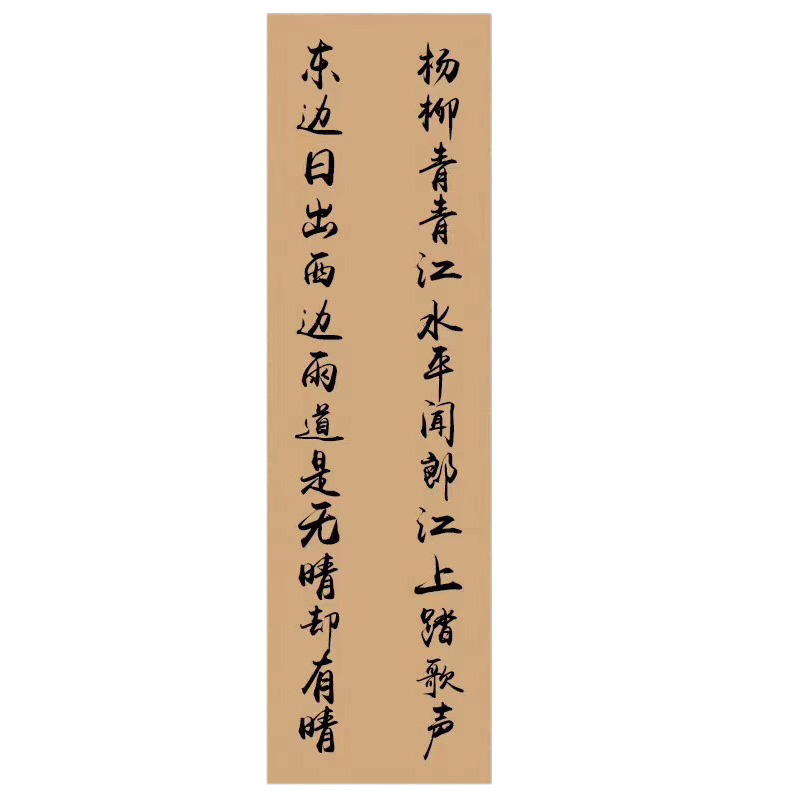 杨柳青青江水平闻郎江上踏歌声
东边日出西边雨道是无晴却有晴